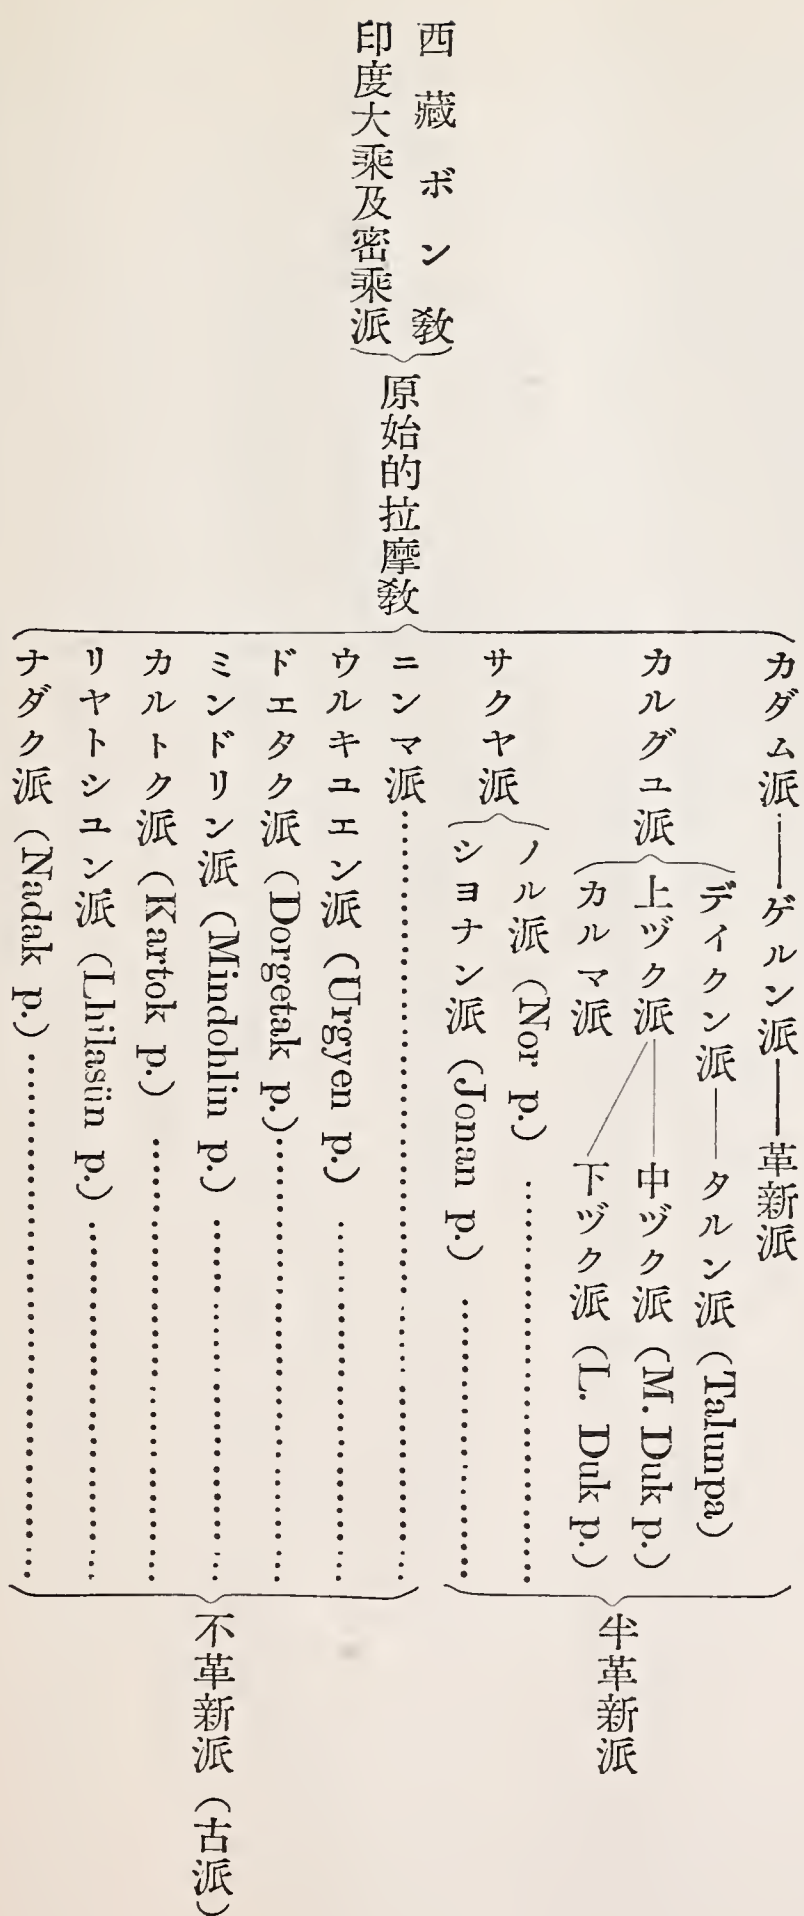 西藏ボン教
印度大乘及密乘派
原始的拉摩教
カダム派——ゲルン派——革新派
カルグユ派
デイクン派——タルン派 (Talunpa)
上ヅク派——中ヅク派 (M. Duk p.)
下ヅク派 (L. Duk p.)
カルマ派
サクヤ派
ノル派 (Nor p.)
シヨナン派 (Jonan p.)
半革新派
ニンマ派
ウルキユエン派 (Urgyen p.)
ドエタク派 (Dorgetak p.)
ミンドリン派 (Mindohlin p.)
カルトク派 (Kartok p.)
リヤトシユン派 (Lhilasün p.)
ナダク派 (Nadak p.)
不革新派 (古派)